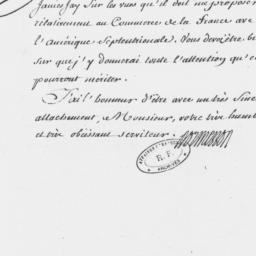 James Jay Sur les vues qu'il doit me proposer
rélativement au Commerce de la France ave
l'amérique Septentrionale. Vous devez être b
sur que j'y donnerai toute l'attention qu'e
pourront mériter.
J'ai l'honneur d'être avec un très Sinc
attachement, Monsieur, votre très humb
et très obéissant serviteur. Dormesson
R. F.
ARCHIVES